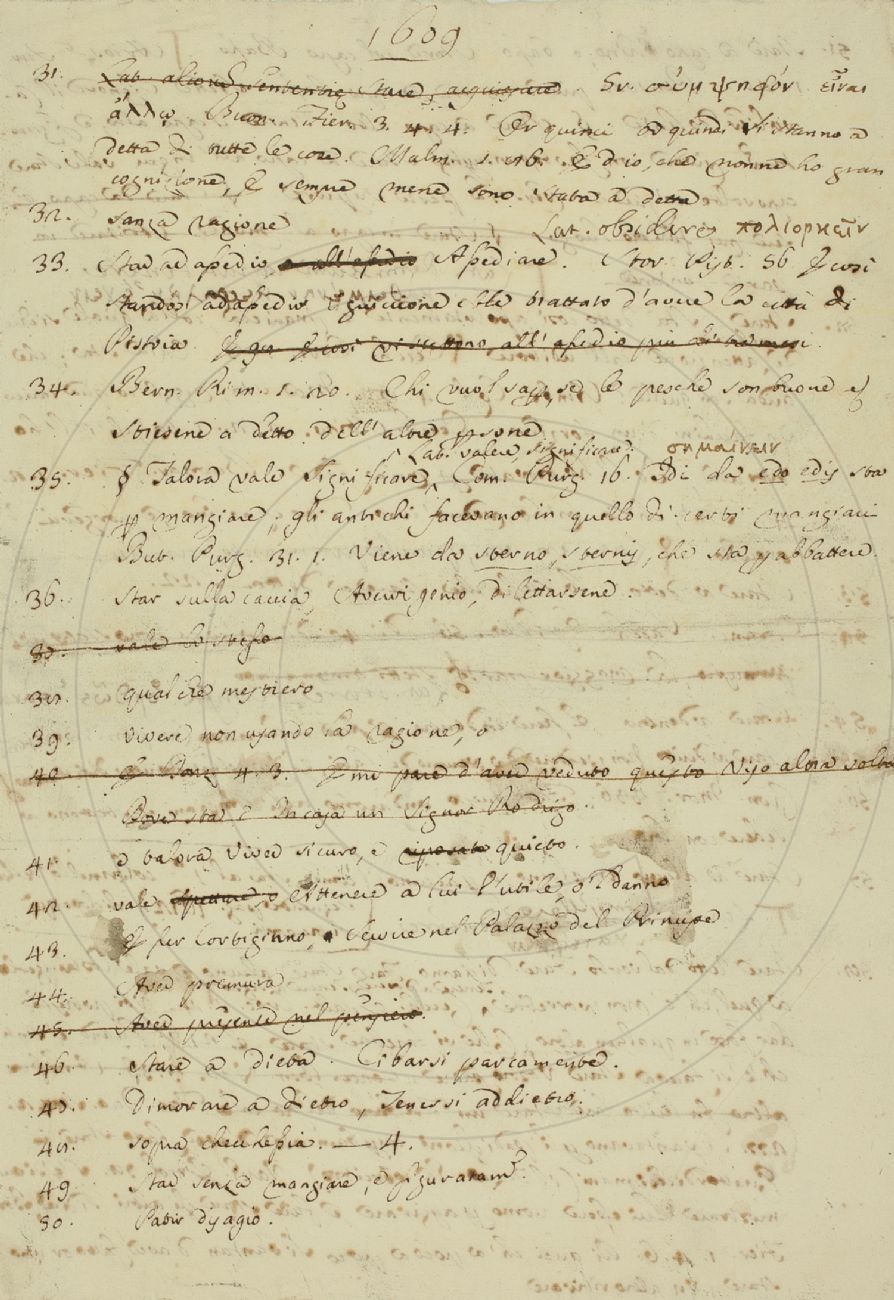 1609
31. Lat. alicuius sententiæ stare, acquiescere. Gr. σύμψηφόν εἶναι
ἄλλῳ Buon. Fier. 3. 4. 4. Er quinci ed quindi si stanno a
detta di tutte le cose. Malm. 1. 16. Ed io, che non ne ho gran
cognizione, E sempre mene sono stata a detta
32. sanza ragione
Lat. obsidere πολιορκεῖν
33. Star ad assedio, o all'assedio Assediare. Stor. Pist. 56 E così
standosi ad assedio Uguiccione ebbe trattato d'avere la città di
Pistoia. E così vi stettono all'assedio più di tre mesi.
34. Bern. Rim. 1. 10. Chi vuol saper, se le pesche son buone e
stiesene a detto dell'altre persone
Lat. valere, significare. σημαίνειν
35. § Talora vale Significare. Com. Purg. 16. Edi da edo edis sta
per mangiare, gli antichi facevano in quello dì certi mangiari
But. Purg. 31. 1. Viene da sterno, sternis, che sta per abbattere.
36. Star sulla caccia, Avervi genio, dilettarsene.
37. vale lo stesso
38. qualche mestiero
39. vivere non usando la ragione, o
40. E mi pare d'aver veduto questo viso altra volta
Dove sta? In casa un Signor Rodrigo.
41. e talora Viver sicuro, e riposato quieto.
42. vale Spettare, o Attenere a lui l'utile, o 'l danno
43. E per Cortigiano, o Servire nel Palazzo del Principe
44. Aver premura
45. Aver presente nel pensiero.
46. Stare a dieta. Cibarsi parcamente.
47. Dimorare a dietro, Tenersi addietro.
48. sopra checchessia. — 4.
49. Star senza mangiare, e figuratam.
50. Patir disagio.